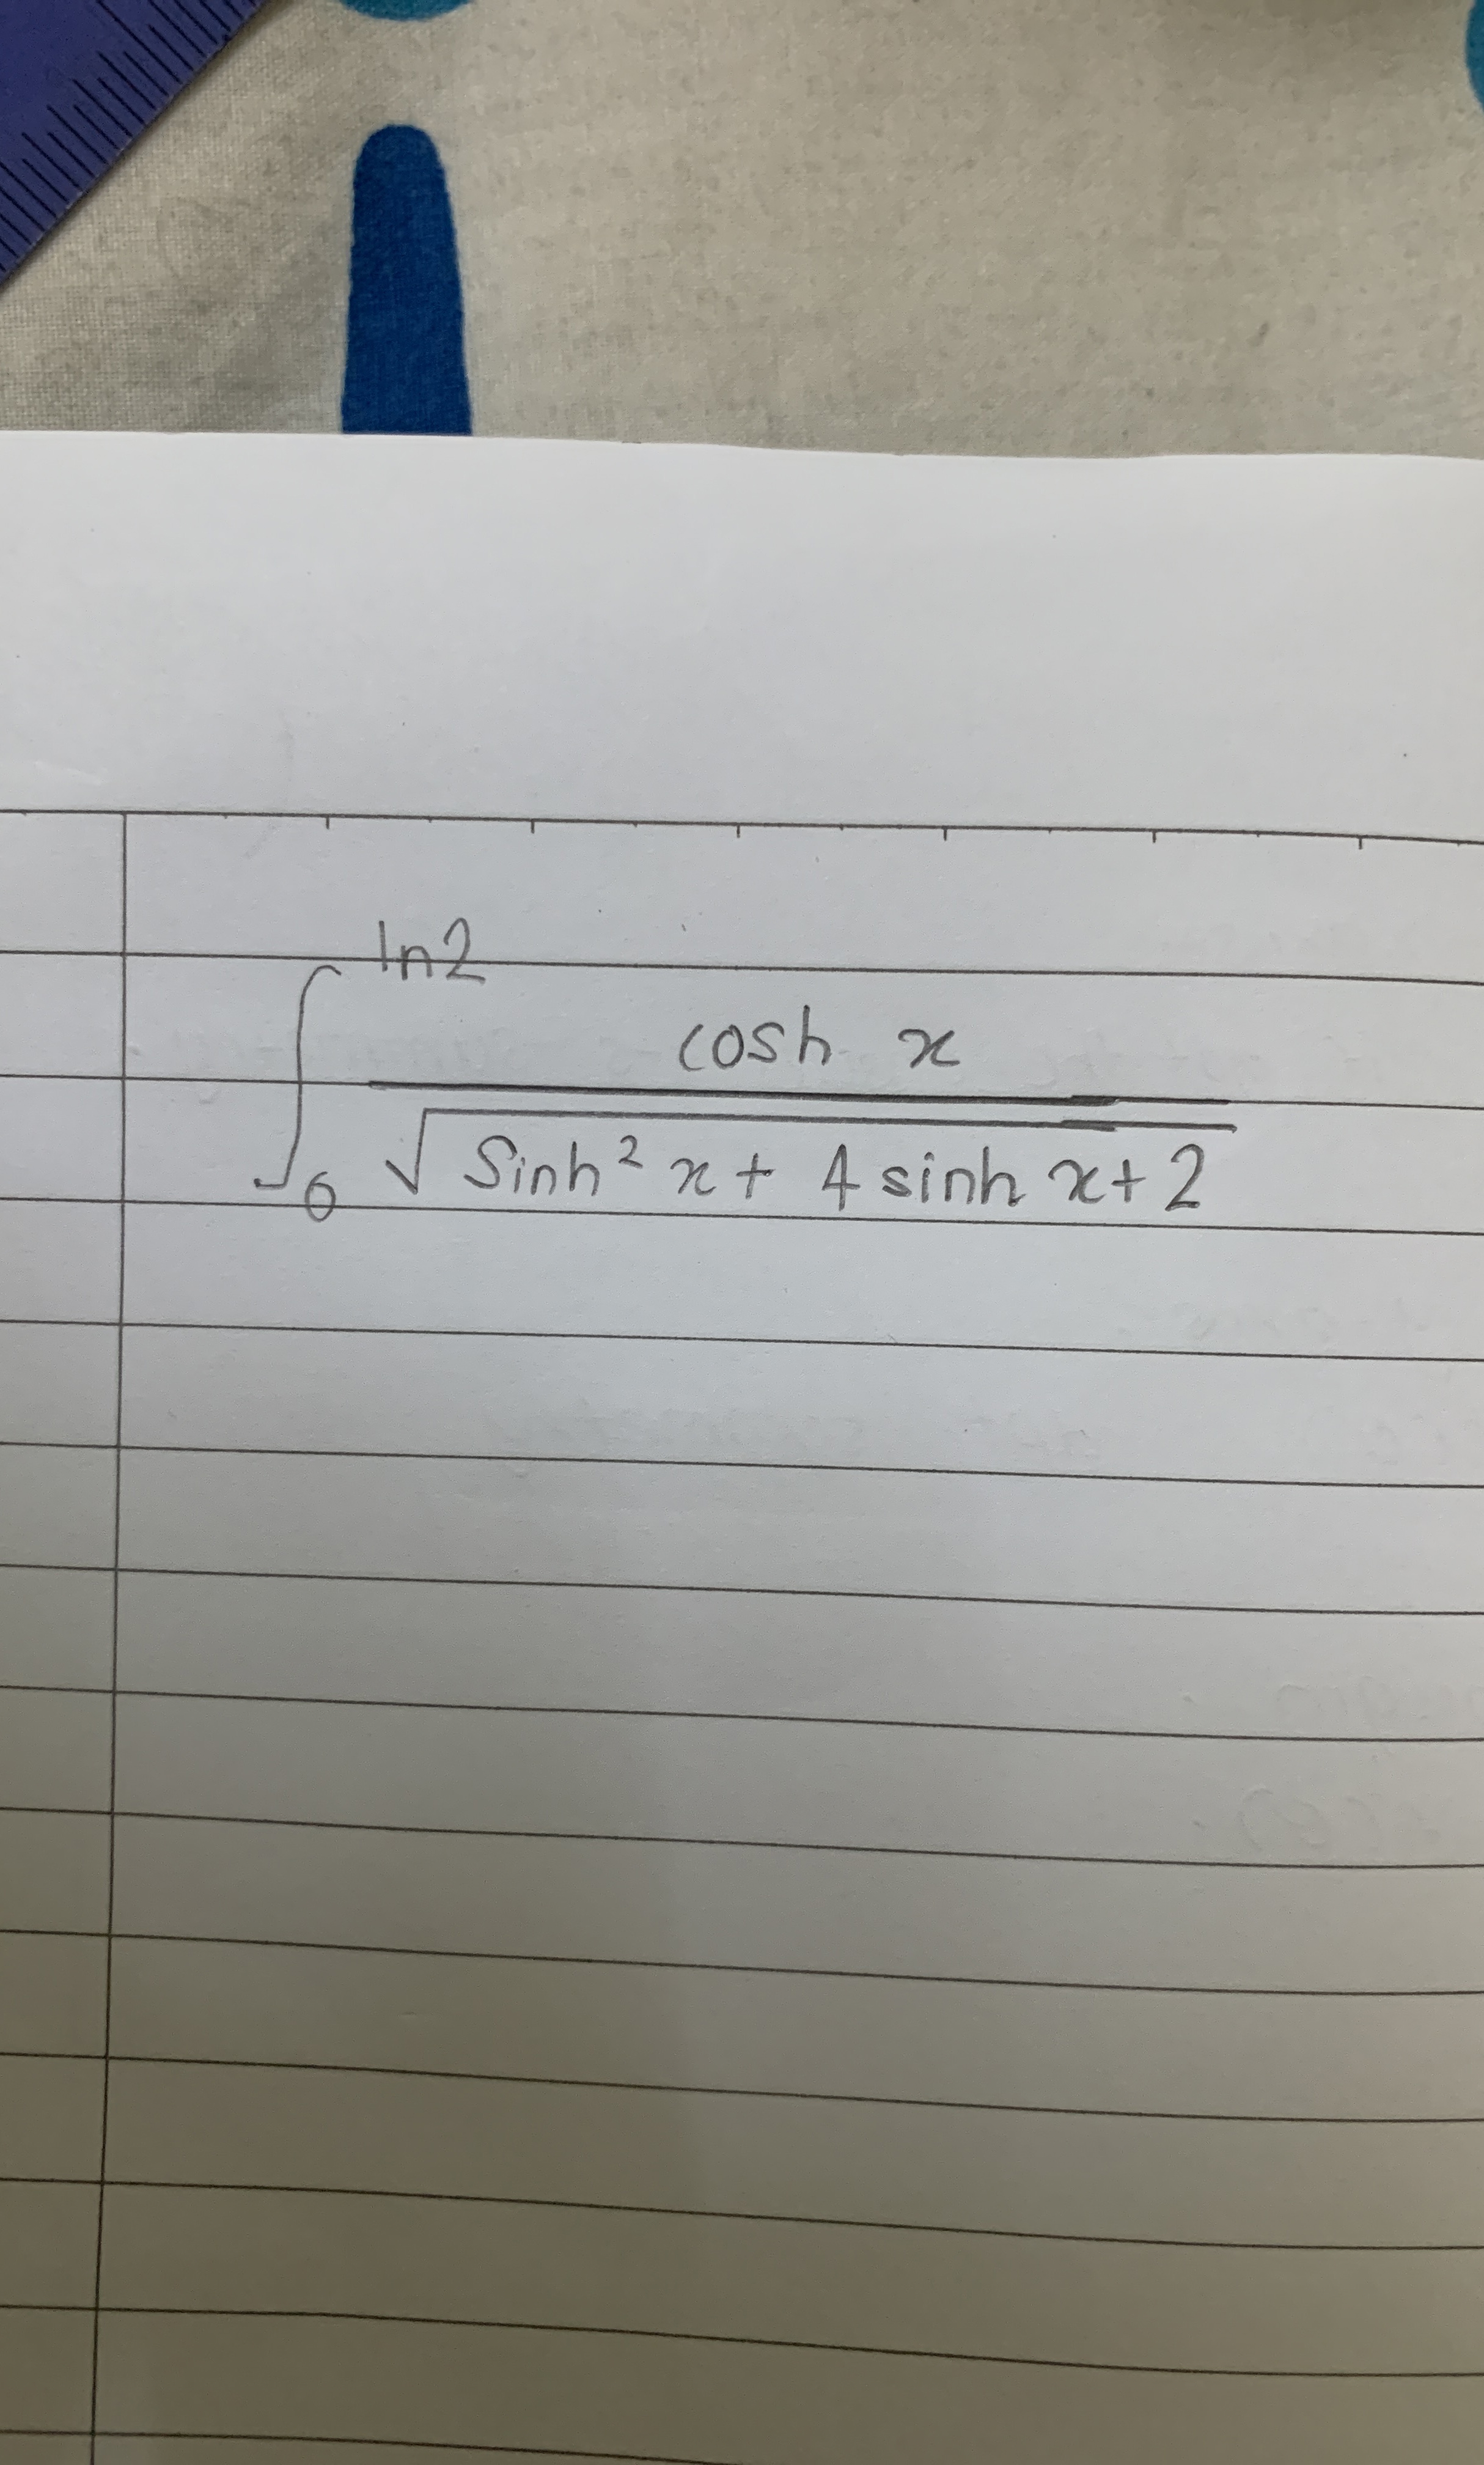 ∫₀^ln2
cosh x
√sinh² x + 4 sinh x + 2